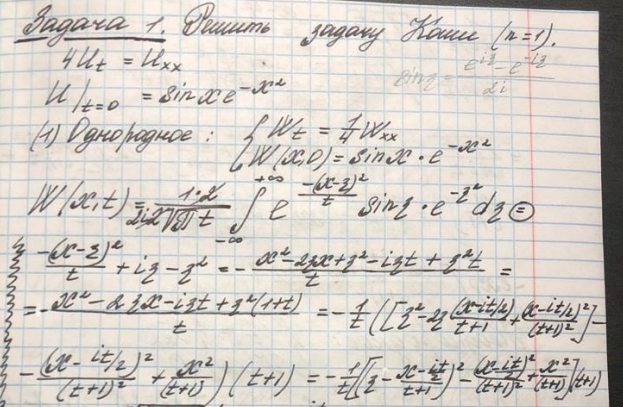 Задача 1. Решить задачу Коши (n=1).
4Ut = Uxx      sinξ = (e^{iξ} - e^{-iξ})/2i
U|t=0 = sinx e^{-x²}
(1) Однородное: { Wt = 1/4 Wxx
{ W(x,0) = sinx · e^{-x²}
W(x,t) = (1·2)/(2i2√(πt)) ∫_{-∞}^{+∞} e^{-(x-ξ)²/t} sinξ · e^{-ξ²} dξ ⊜
-(x-ξ)²/t + iξ - ξ² = - (x² - 2ξx + ξ² - iξt + ξ²t)/t =
= - (x² - 2ξx - iξt + ξ²(1+t))/t = -1/t ([ξ² - 2ξ (x-it/2)/(t+1) + (x-it/2)²/(t+1)²] -
- (x - it/2)²/(t+1)² + x²/(t+1)) (t+1) = -1/t [(ξ - (x-it/2)/(t+1))² - (x-it/2)²/(t+1)² + x²/(t+1)] (t+1)